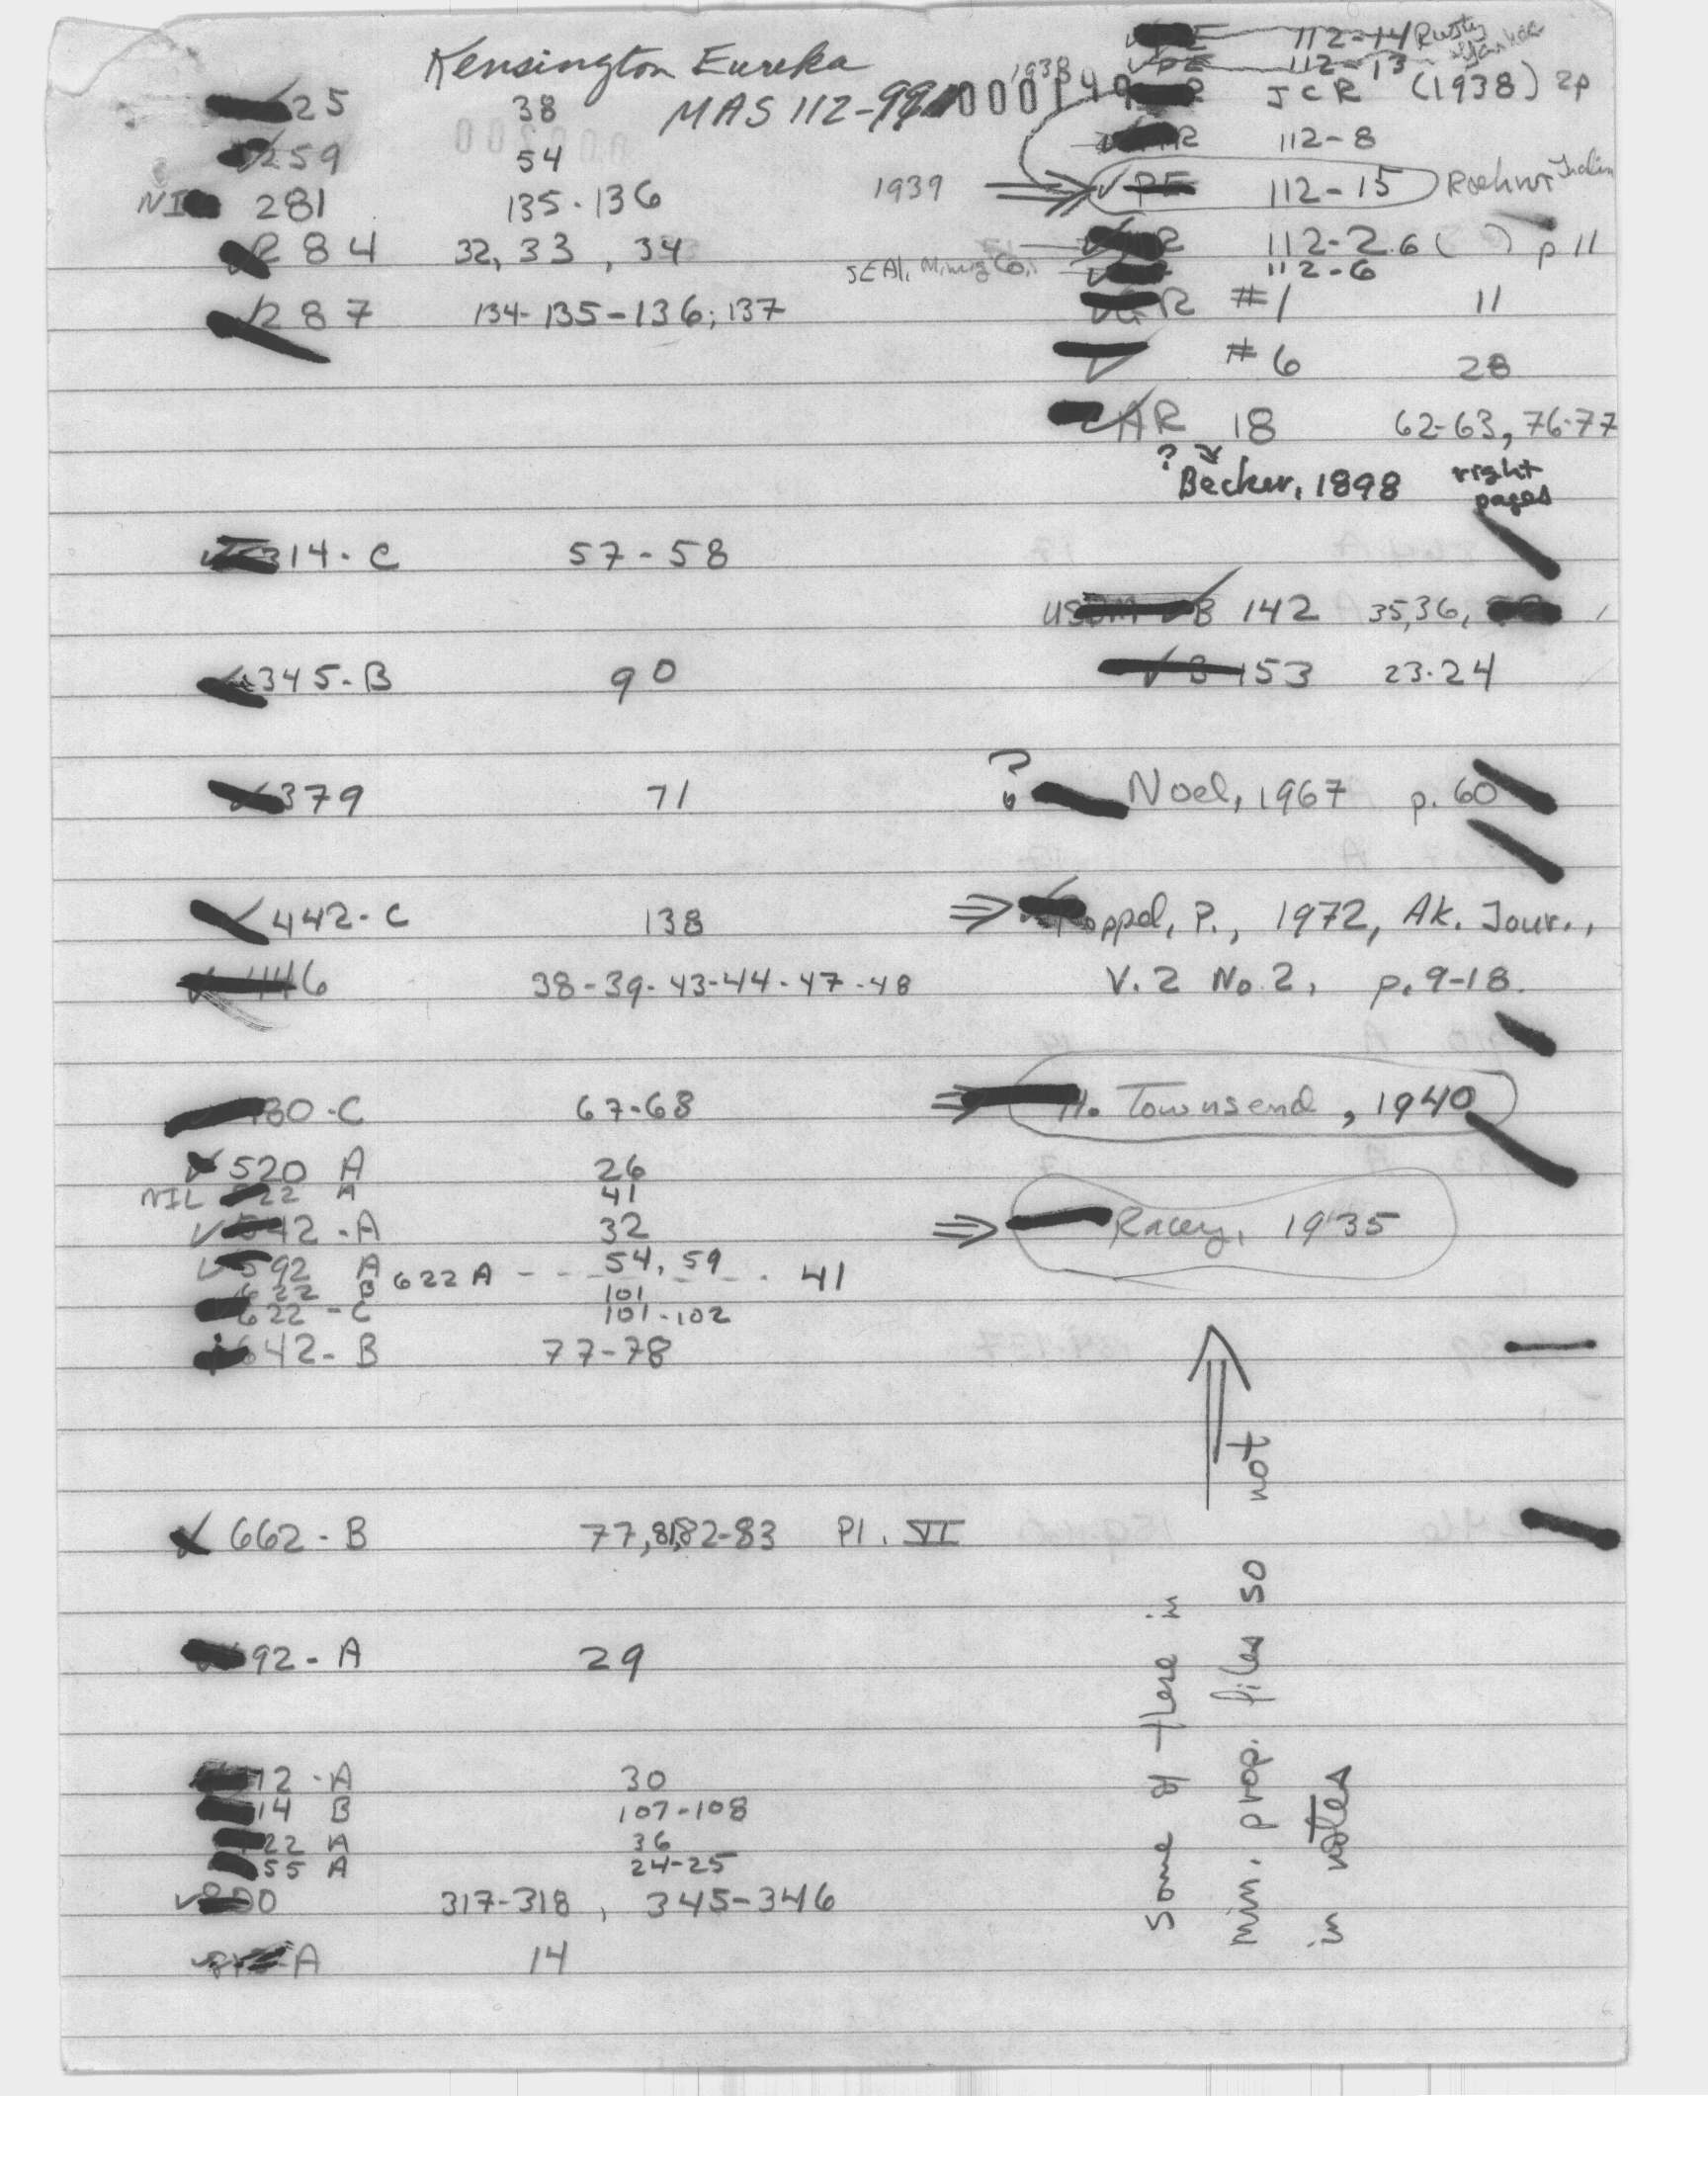 Kensington Eureka
MAS 112-99
25 38
259 54
281 135-136
284 32, 33, 34
287 134-135-136; 137
314-C 57-58
345-B 90
379 71
442-C 138
446 38-39-43-44-47-48
80-C 67-68
520 A 26
NIL 22 A 41
42-A 32
592 A 54, 59
622 A 41
622 B 101
622-C 101-102
642-B 77-78
662-B 77, 81, 82-83 Pl. VI
92-A 29
12-A 30
14 B 107-108
22 A 36
55 A 24-25
317-318, 345-346
A 14
112-14 Rusty
112-13
1938 JCR (1938) 2p
112-8
1939 PE 112-15
112-2 6 ( ) p 11
112-6
R #1 11
#6 28
AR 18 62-63, 76-77
? Becker, 1898 right
pages
B 142 35,36,
B 153 23-24
? Noel, 1967 p. 60
⇒ oppel, P., 1972, Ak. Jour.,
V. 2 No 2, p. 9-18.
⇒ H. Townsend, 1940
⇒ Racey, 1935
Some of these in
min. prop. files so not
in notes